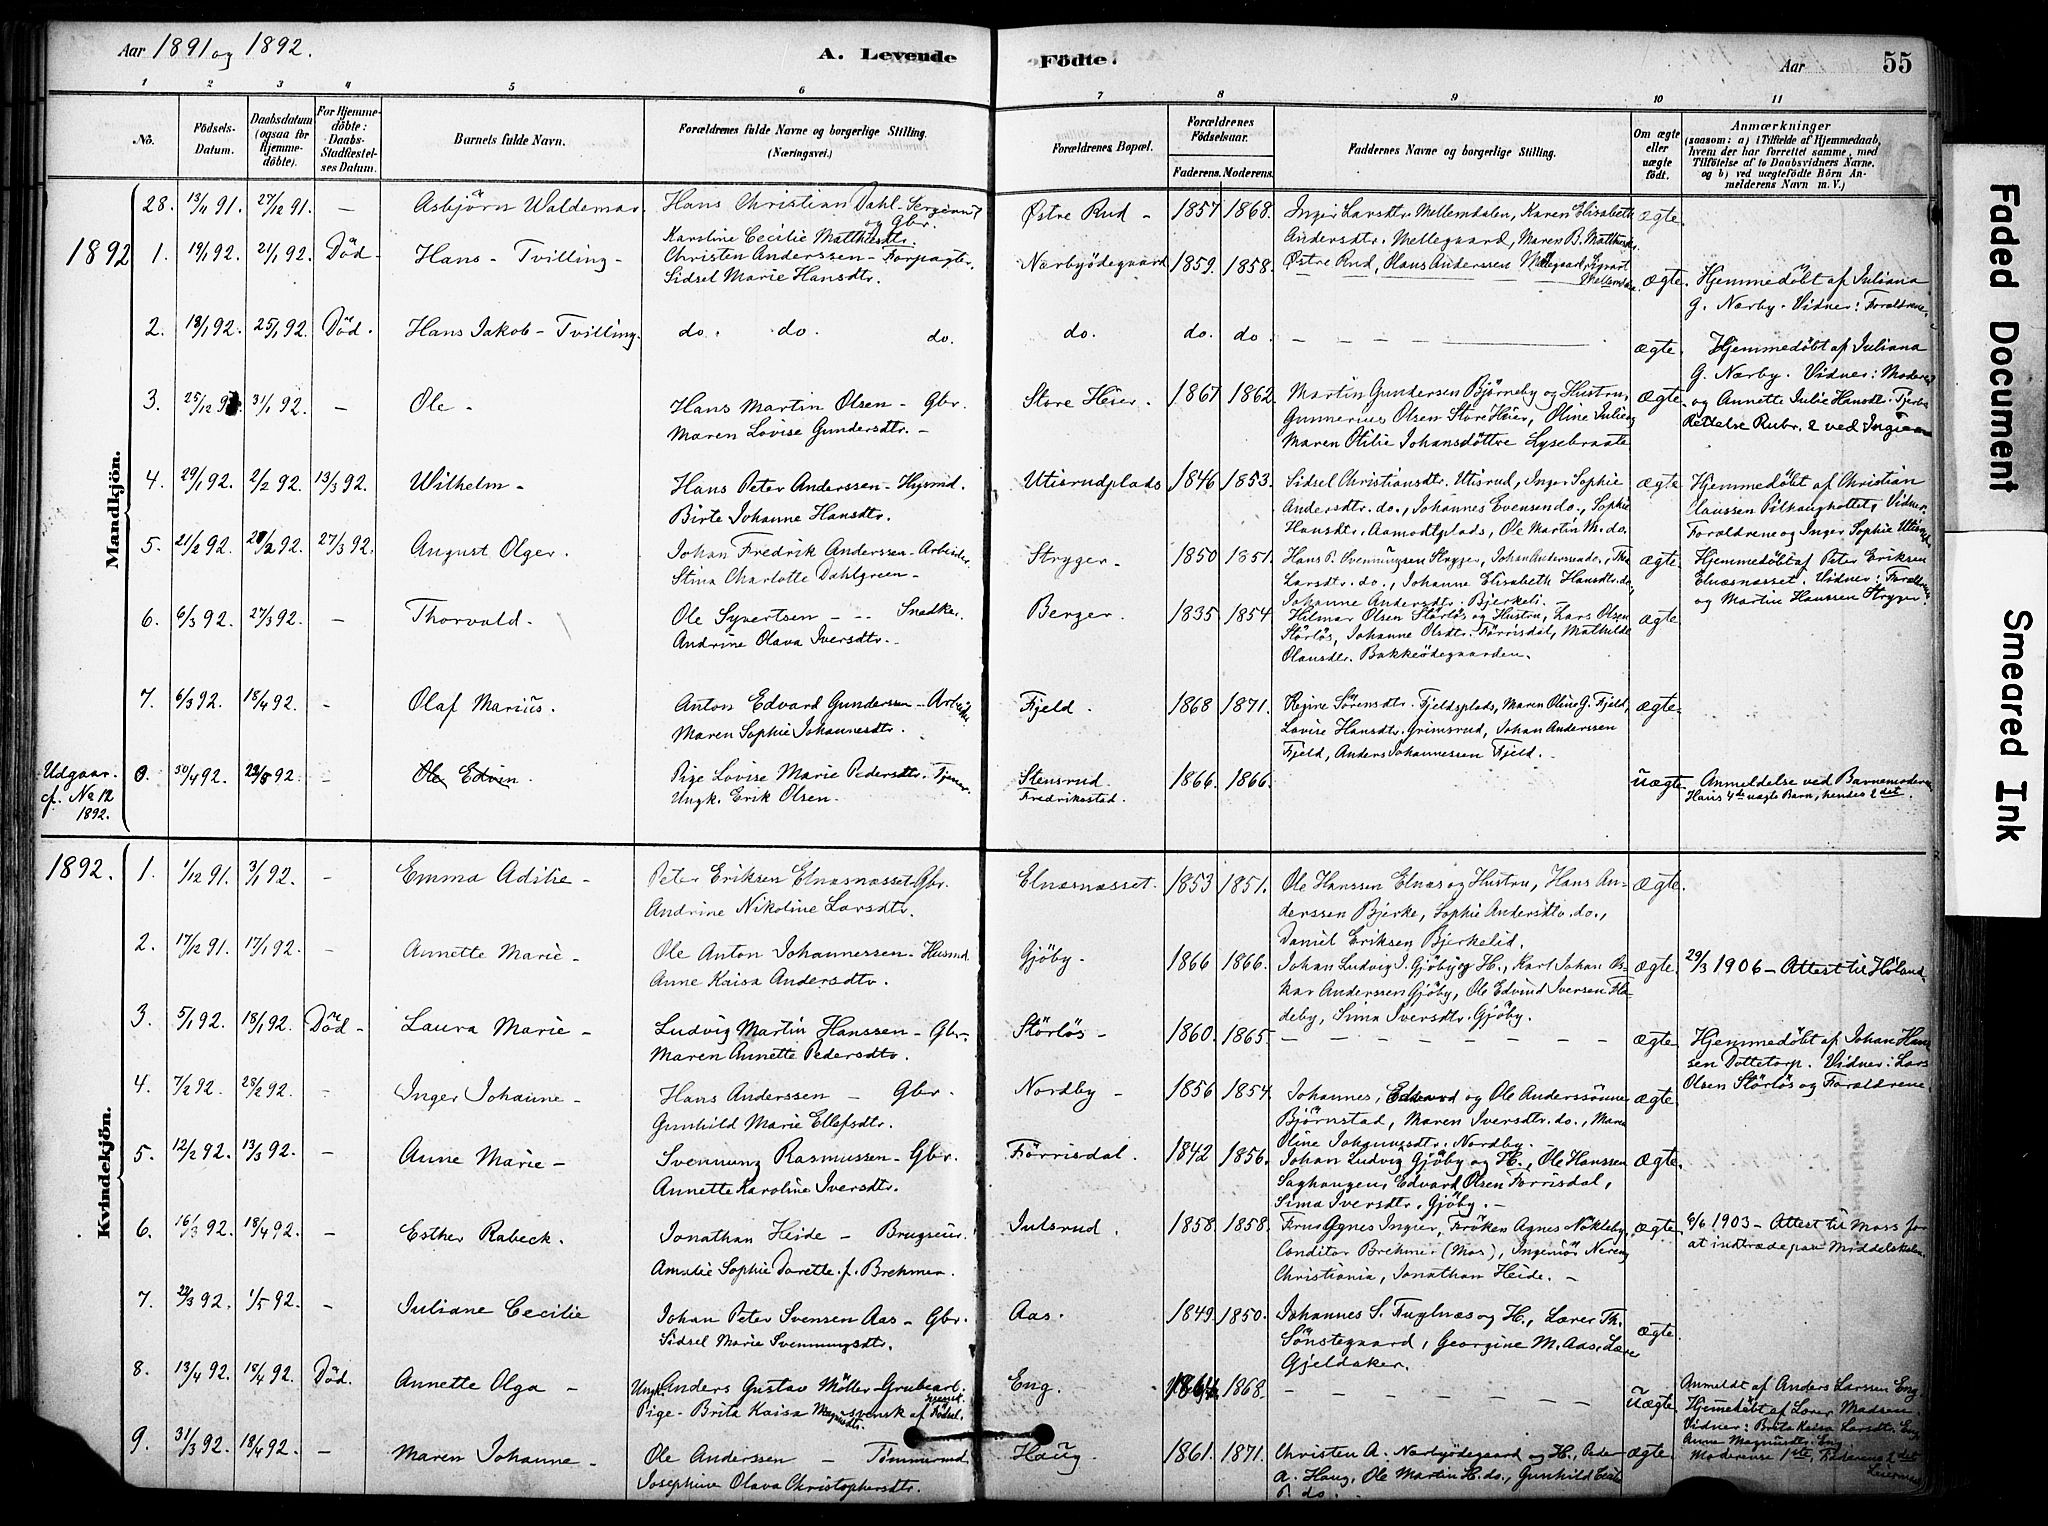 Aar 1891 og 1892.
A. Levende Födte.
Aar
55
1 2 3 4 5 6 7 8 9 10 11
No.
Födsels-Datum.
Daabsdatum (ogsaa for Hjemmedöbte).
For Hjemmedöbte: Daabs-Stadfæstelses Datum.
Barnets fulde Navn.
Forældrenes fulde Navne og borgerlige Stilling. (Næringsvei.)
Forældrenes Bopæl.
Forældrenes Födselsaar.
Faderens. Moderens.
Faddernes Navne og borgerlige Stilling.
Om ægte eller uægte födt.
Anmærkninger
(saasom: a) i Tilfælde af Hjemmedaab, hvem der har forrettet samme, med Tilföielse af to Daabsvidners Navne, og b) ved uægtefödte Börn Anmelderens Navn m. V.)
Mandkjön.
28. 13/11 91. 27/12 91. — Asbjörn Waldemar Hans Christian Dahl og Gbr. Karoline Cecilie Matthisdtr. Østre Rud — 1857 1868. Inger Larsdtr. Mellemdalen, Karen Elisabeth Andersdtr. Mellegaard, Maren B. ægte.
Østre Rud, Olaus Anderssen
1892 1. 19/1 92. 21/1 92. Död. Hans - Tvilling - Christen Anderssen - Forpagter. Sidsel Marie Hansdtr. Nærbyödegaard 1859. 1858. ægte. Hjemmedöbt af Juliana G. Nærby. Vidner: Forældrene.
2. 18/1 92. 25/1 92. Död. Hans Jakob - Tvilling. do. do. do. do. do. do. — — — ægte. Hjemmedöbt af Juliana G. Nærby. Vidner: Moderen og Annette Julie Hansdtr.
3. 25/12 31/1 92. — Ole - Hans Martin Olsen - Gbr. Maren Lovise Gundersdtr. - Store Heier. 1867 1862. Martin Gundersen Björneby og Hustru, Gunnerius Olsen Store Heier, Oline Julie og Maren Otilie Johansdöttre Lysebraate ægte. Rettelse Rubr. 2 ved
4. 29/1 92. 2/2 92. 13/3 92. Wilhelm - Hans Peter Anderssen - Husmd. Birte Johanne Hansdtr. Utisrudplads 1846 1853. Sidsel Christiansdtr. Utisrud, Inger Sophie Andersdtr. do., Johannes Evensen do., Sophie Hansdtr. Aamodtplads, Ole Martin M. do. ægte Hjemmedöbt af Christian Claussen Vidner: Forældrene og Inger Sophie Utisrud.
5. 21/2 92. 92. 27/3 92. August Olger. Johan Fredrik Anderssen - Arbeider. Stina Charlotte Dahlgreen - Stryger - 1850 1851. Hans P. Svenningsen Stryger, Larsdtr. do., Johanne Elisabeth Hansdtr. do., Johanne Andersdtr. Bjerkeli. - ægte Hjemmedöbt af Peter Eriksen Elnæsnæsset. Vidner: Forældrene og Martin Hanssen Stryger
6. 6/3 92. 27/3 92. — Thorvald. Ole Syvertsen - - Snedker. Andrine Olava Iversdtr. Berger. 1835 1854. Hilmar Olsen Störlös og Hustru, Lars Olsen Störlös, Johanne Olsdtr. Förrisdal, Mathilde Olausdtr. Bakkeödegaarden. ægte
7. 6/3 92. 18/4 92. - Olaf Marius. Anton Edvard Gundersen - Arbeider Maren Sophie Johannesdtr. Fjeld. 1868 1871. Regine Sörensdtr. Fjeldsplads, Maren Oline G. Fjeld, Lovise Hansdtr. Grimsrud, Johan Anderssen Fjeld, Anders Johannessen Fjeld. ægte.
Udgaar. cf. No 12 1892. 0. 30/4 92. 92. - Ole Edvin. Pige Lovise Marie Pedersdtr. Tjener. Ungk. Erik Olsen. Stensrud. Fredrikstad. 1866. 1866. uægte Anmeldelse ved Barnemoderen. Hans 4de uægte Barn, hendes 2det.
Kvindekjön.
1892. 1. 1/12 91. 3/1 92. - Emma Adilie - Peter Eriksen Elnæsnæsset. Gbr. Andrine Nikoline Larsdtr. Elnæsnæsset. 1853 1851. Ole Hanssen Elnæs og Hustru, Hans Anderssen Bjerke, Sophie Andersdtr. do., Daniel Eriksen Bjerkelid. ægte.
2. 17/12 91. 17/1 92. - Annette Marie - Ole Anton Johannessen - Husmd. Anne Kaisa Andersdtr. Gjöby. 1866 1866. Johan Ludvig J. Gjöby og H., Karl Johan Oskar Anderssen Gjöby, Ole Edvind Iversen Fladeby, Sima Iversdtr. Gjöby. ægte. 29/3 1906 - Attest til Höland.
3. 5/1 92. 18/1 92. Död - Laura Marie - Ludvig Martin Hanssen - Gbr. Maren Annette Pedersdtr. Störlös - 1860. 1865. — — — ægte. Hjemmedöbt af Johan Hanssen Dottetorp. Vidner: Lars Olsen Störlös og Forældrene.
4. 7/2 92. 28/2 92. - Inger Johanne - Hans Anderssen - Gbr. Gunhild Marie Ellefsdtr. Nordby - 1856 1854. Johannes, Edvard og Ole Anderssönner Björnstad, Maren Iversdtr. do., Maren Oline Johannesdtr. Nordby. - ægte.
5. 12/2 92. 13/3 92. - Anne Marie - Svennung Rasmussen - Gbr. Annette Karoline Iversdtr. Förrisdal. 1842 1856. Johan Ludvig Gjöby og H., Ole Hanssen Saghaugen, Edvard Olsen Förrisdal, Sima Iversdtr. Gjöby. - ægte.
6. 16/3 92. 18/4 92. - Esther Rabeck. Jonathan Heide - Brugseier. Amalie Sophie Dorette f. Brehmer. Julsrud. 1858 1858. Frue Agnes Ingier, Fröken Agnes Nökleby, Conditor Brehmer (Mos), Ingeniör Christiania, Jonathan Heide. - ægte 6/6 1903 - Attest til Moss for at indtræde paa Middelskolen.
7. 92. 1/5 92. - Juliane Cecilie Johan Peter Svensen Aas - Gbr. Sidsel Marie Svenningsdtr. Aas. 1849 1850. Johannes S. Fuglnæs og H., Lærer Th. Sönstegaard, Georgine M. Aas, Lærer Gjeldaker. ægte
8. 13/4 92. 18/4 92. Död. Annette Olga - Ungk. Anders Gustav Möller - Grubearb. svensk Pige - Brita Kaisa Magnisdtr. svensk af Födsel. Eng. 1868. — — — uægte. Anmeldt af Anders Larssen Eng. Hjemmedöbt af Lærer Madsen. Vidner: Brita Kaisa Larsdtr. Eng, Anna Magnusdtr. Eng Moderens 1ste, Faderens 2det Leiermaal
9. 31/3 92. 18/4 92. - Maren Johanne - Ole Anderssen - Tömmermd. Josephine Olava Christophersdtr. Haug. 1861. 1871. Christen A. Nærbyödegaard og H., Peder A. Haug, Ole Martin H. do., Gunhild P. do. ægte
Faded Document
Smeared Ink